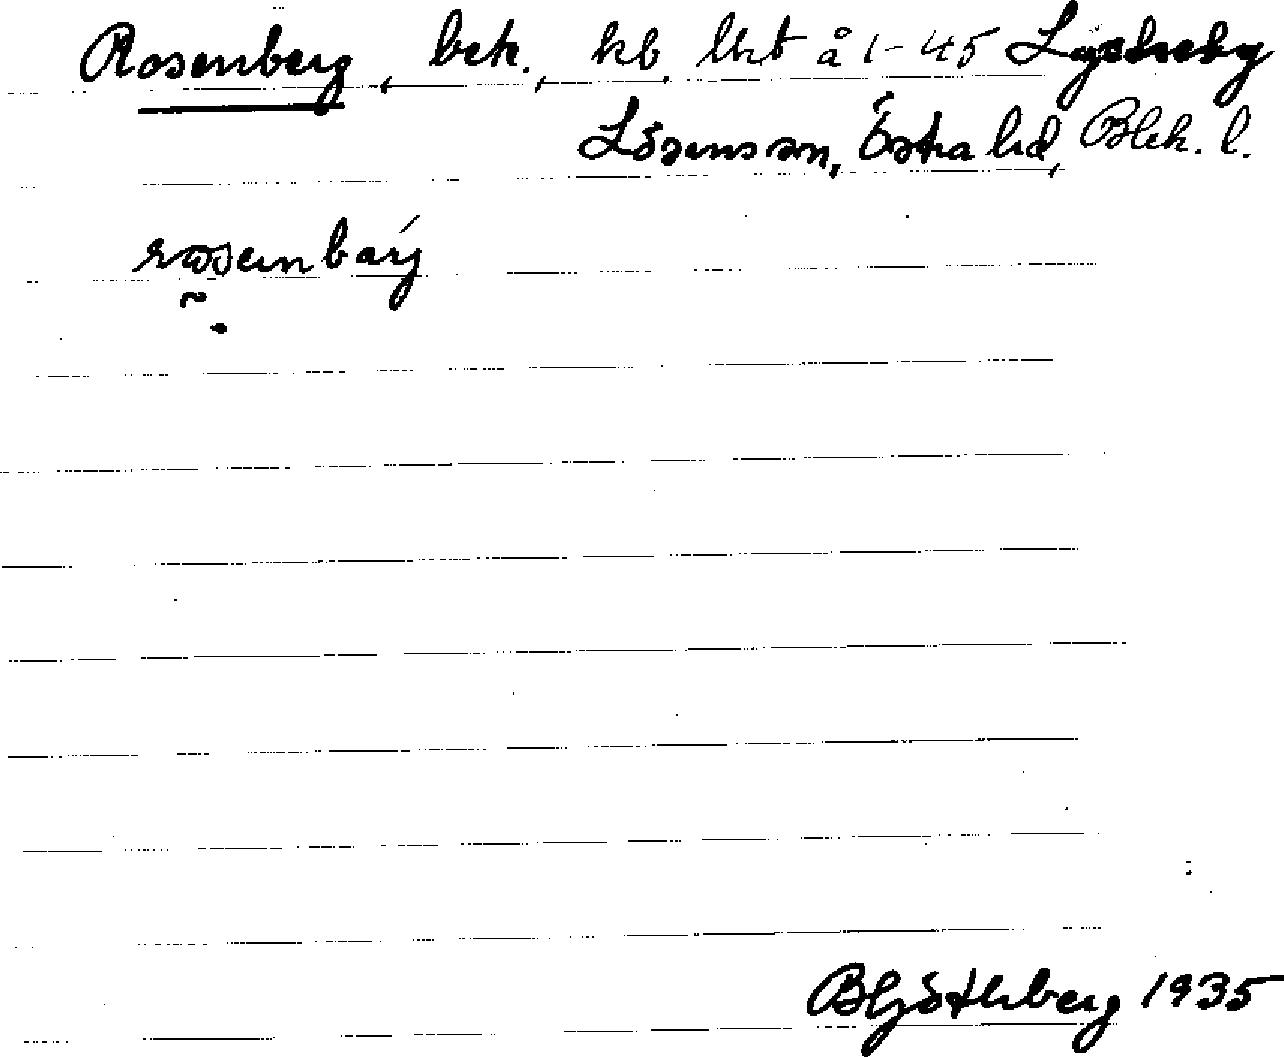 Rosenberg, bek., kb. lht å 1-45 Lyckeby
Lösensan, Östra hd, Blek. l.
rosenbärj
BHGöthberg 1935